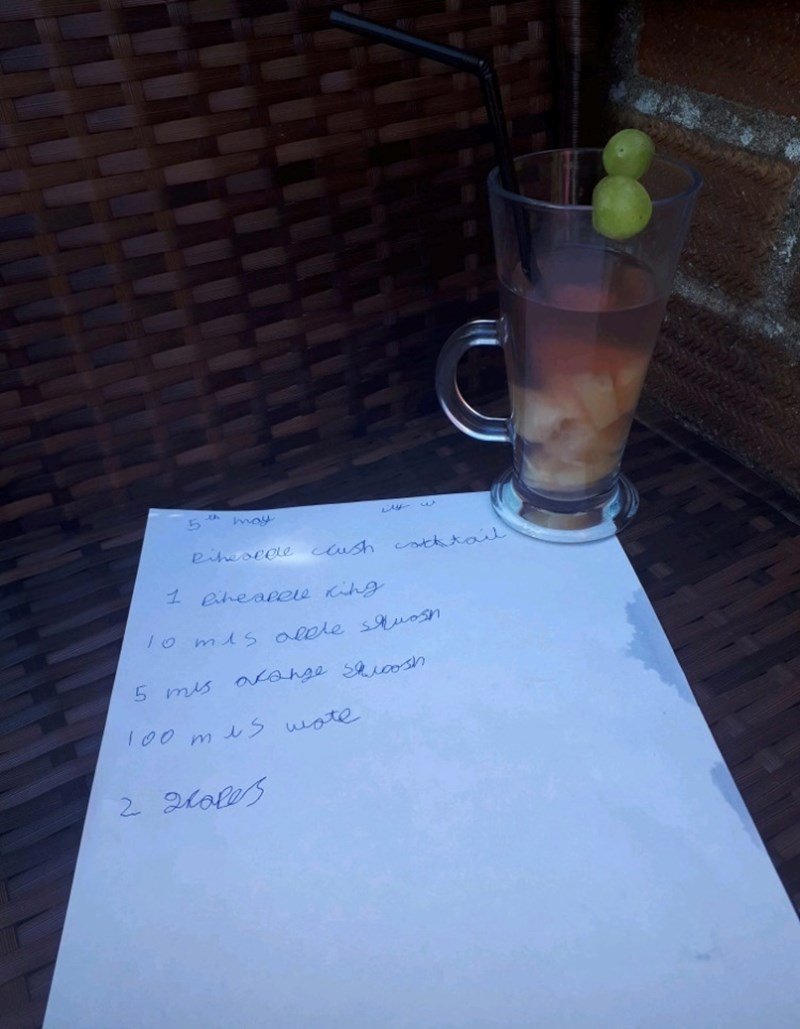 5th may
Pineapple crush cocktail
1 pineapple ring
10 mls apple squash
5 mls orange squash
100 mls wate
2 grapes